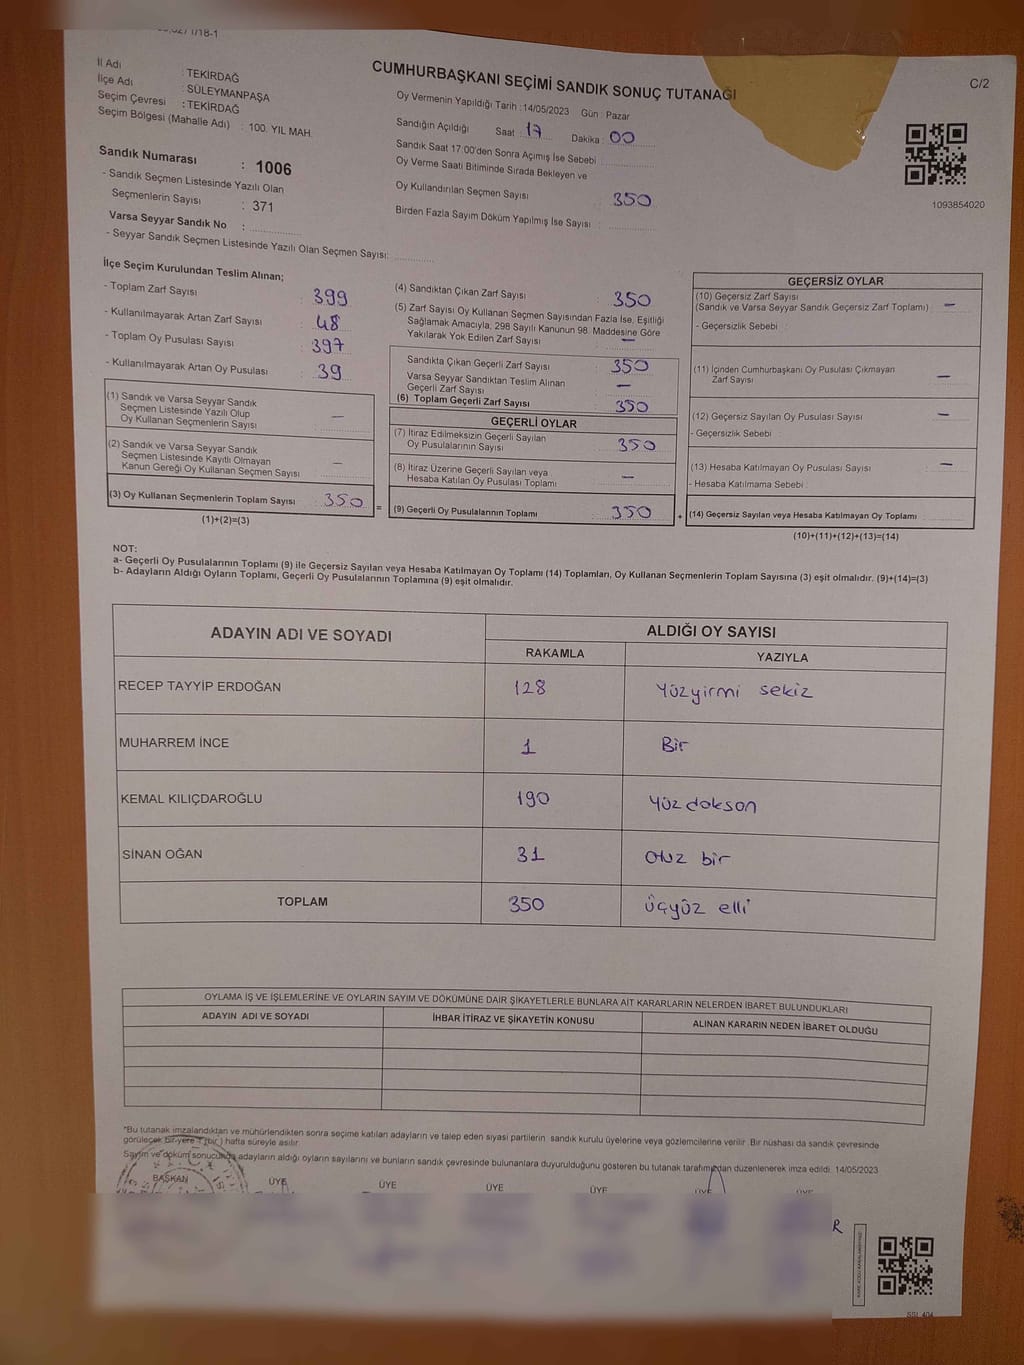 CUMHURBAŞKANI SEÇİMİ SANDIK SONUÇ TUTANAĞI
C/2
İl Adı : TEKİRDAĞ
İlçe Adı : SÜLEYMANPAŞA
Seçim Çevresi : TEKİRDAĞ
Seçim Bölgesi (Mahalle Adı) : 100. YIL MAH.
Sandık Numarası : 1006
- Sandık Seçmen Listesinde Yazılı Olan
Seçmenlerin Sayısı : 371
Varsa Seyyar Sandık No :
- Seyyar Sandık Seçmen Listesinde Yazılı Olan Seçmen Sayısı:
Oy Vermenin Yapıldığı Tarih : 14/05/2023 Gün : Pazar
Sandığın Açıldığı Saat : 17 Dakika : 00
Sandık Saat 17:00'den Sonra Açımış İse Sebebi :
Oy Verme Saati Bitiminde Sırada Bekleyen ve
Oy Kullandırılan Seçmen Sayısı : 350
Birden Fazla Sayım Döküm Yapılmış İse Sayısı :
1093854020
İlçe Seçim Kurulundan Teslim Alınan;
- Toplam Zarf Sayısı : 399
- Kullanılmayarak Artan Zarf Sayısı : 48
- Toplam Oy Pusulası Sayısı : 397
- Kullanılmayarak Artan Oy Pusulası : 39
(1) Sandık ve Varsa Seyyar Sandık
Seçmen Listesinde Yazılı Olup
Oy Kullanan Seçmenlerin Sayısı : —
(2) Sandık ve Varsa Seyyar Sandık
Seçmen Listesinde Kayıtlı Olmayan
Kanun Gereği Oy Kullanan Seçmen Sayısı : —
(3) Oy Kullanan Seçmenlerin Toplam Sayısı : 350
(1)+(2)=(3)
=
(4) Sandıktan Çıkan Zarf Sayısı : 350
(5) Zarf Sayısı Oy Kullanan Seçmen Sayısından Fazla İse, Eşitliği
Sağlamak Amacıyla, 298 Sayılı Kanunun 98. Maddesine Göre
Yakılarak Yok Edilen Zarf Sayısı : —
Sandıkta Çıkan Geçerli Zarf Sayısı : 350
Varsa Seyyar Sandıktan Teslim Alınan
Geçerli Zarf Sayısı : —
(6) Toplam Geçerli Zarf Sayısı : 350
GEÇERLİ OYLAR
(7) İtiraz Edilmeksizin Geçerli Sayılan
Oy Pusulalarının Sayısı : 350
(8) İtiraz Üzerine Geçerli Sayılan veya
Hesaba Katılan Oy Pusulası Toplamı : —
(9) Geçerli Oy Pusulalarının Toplamı : 350
+
GEÇERSİZ OYLAR
(10) Geçersiz Zarf Sayısı
(Sandık ve Varsa Seyyar Sandık Geçersiz Zarf Toplamı) : —
- Geçersizlik Sebebi :
(11) İçinden Cumhurbaşkanı Oy Pusulası Çıkmayan
Zarf Sayısı : —
(12) Geçersiz Sayılan Oy Pusulası Sayısı : —
- Geçersizlik Sebebi :
(13) Hesaba Katılmayan Oy Pusulası Sayısı : —
- Hesaba Katılmama Sebebi :
(14) Geçersiz Sayılan veya Hesaba Katılmayan Oy Toplamı :
(10)+(11)+(12)+(13)=(14)
NOT:
a- Geçerli Oy Pusulalarının Toplamı (9) ile Geçersiz Sayılan veya Hesaba Katılmayan Oy Toplamı (14) Toplamları, Oy Kullanan Seçmenlerin Toplam Sayısına (3) eşit olmalıdır. (9)+(14)=(3)
b- Adayların Aldığı Oyların Toplamı, Geçerli Oy Pusulalarının Toplamına (9) eşit olmalıdır.
ADAYIN ADI VE SOYADI ALDIĞI OY SAYISI
RAKAMLA YAZIYLA
RECEP TAYYİP ERDOĞAN 128 Yüzyirmi sekiz
MUHARREM İNCE 1 Bir
KEMAL KILIÇDAROĞLU 190 Yüzdokson
SİNAN OĞAN 31 Otuz bir
TOPLAM 350 üçyüz elli
OYLAMA İŞ VE İŞLEMLERİNE VE OYLARIN SAYIM VE DÖKÜMÜNE DAİR ŞİKAYETLERLE BUNLARA AİT KARARLARIN NELERDEN İBARET BULUNDUKLARI
ADAYIN ADI VE SOYADI İHBAR İTİRAZ VE ŞİKAYETİN KONUSU ALINAN KARARIN NEDEN İBARET OLDUĞU
*Bu tutanak imzalandıktan ve mühürlendikten sonra seçime katılan adayların ve talep eden siyasi partilerin sandık kurulu üyelerine veya gözlemcilerine verilir. Bir nüshası da sandık çevresinde
görülecek bir yere 1 (bir) hafta süreyle asılır.
Sayım ve döküm sonucunda adayların aldığı oyların sayılarını ve bunların sandık çevresinde bulunanlara duyurulduğunu gösteren bu tutanak tarafımızdan düzenlenerek imza edildi. 14/05/2023
BAŞKAN ÜYE ÜYE ÜYE ÜYE ÜYE ÜYE